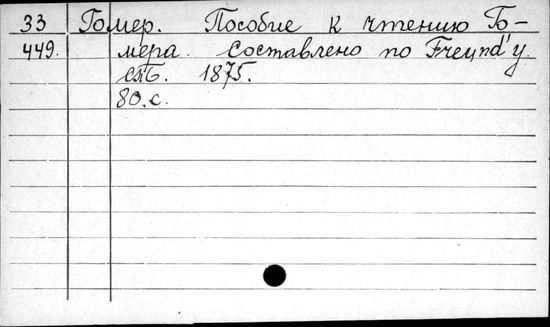 33 Гомер. Пособие к чтению Го-
449. мера. составлено по Freund'у.
спб. 1875.
80. с.